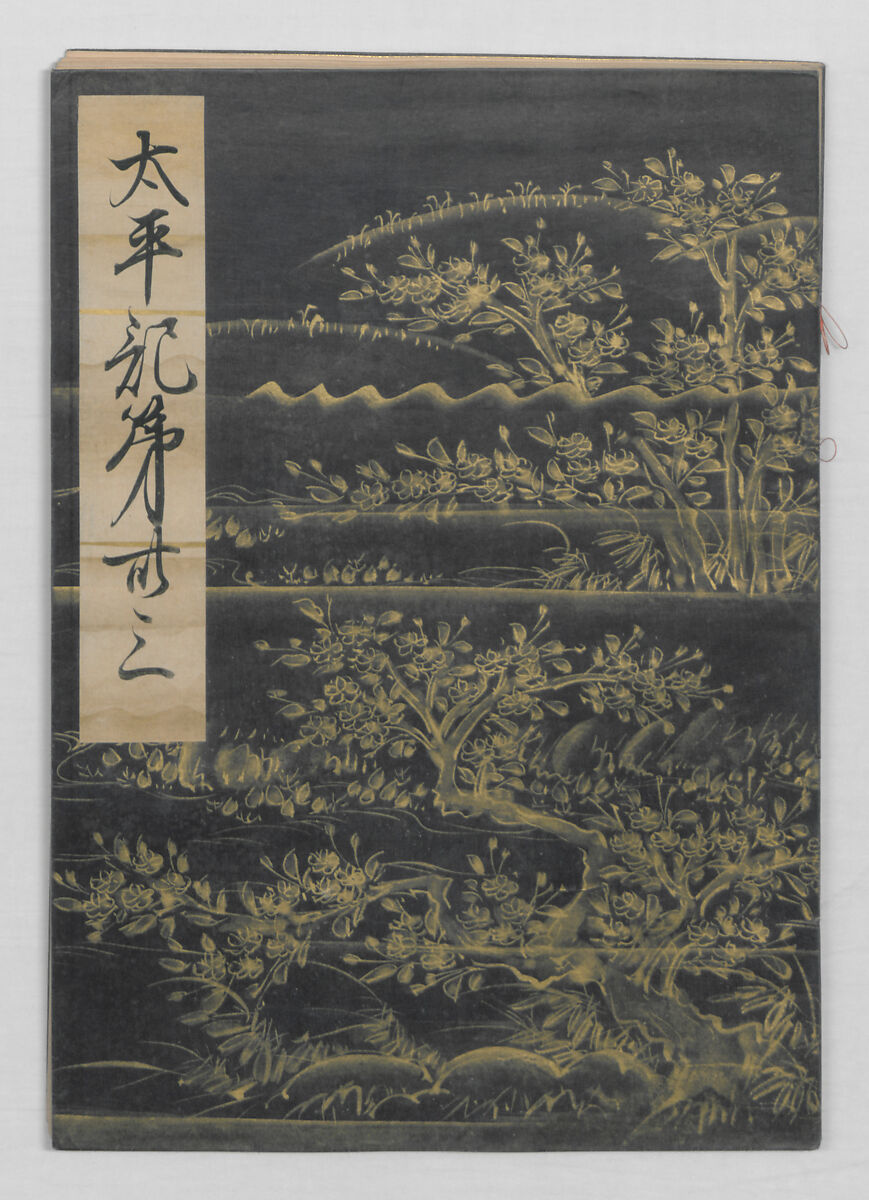 太平記第卅三